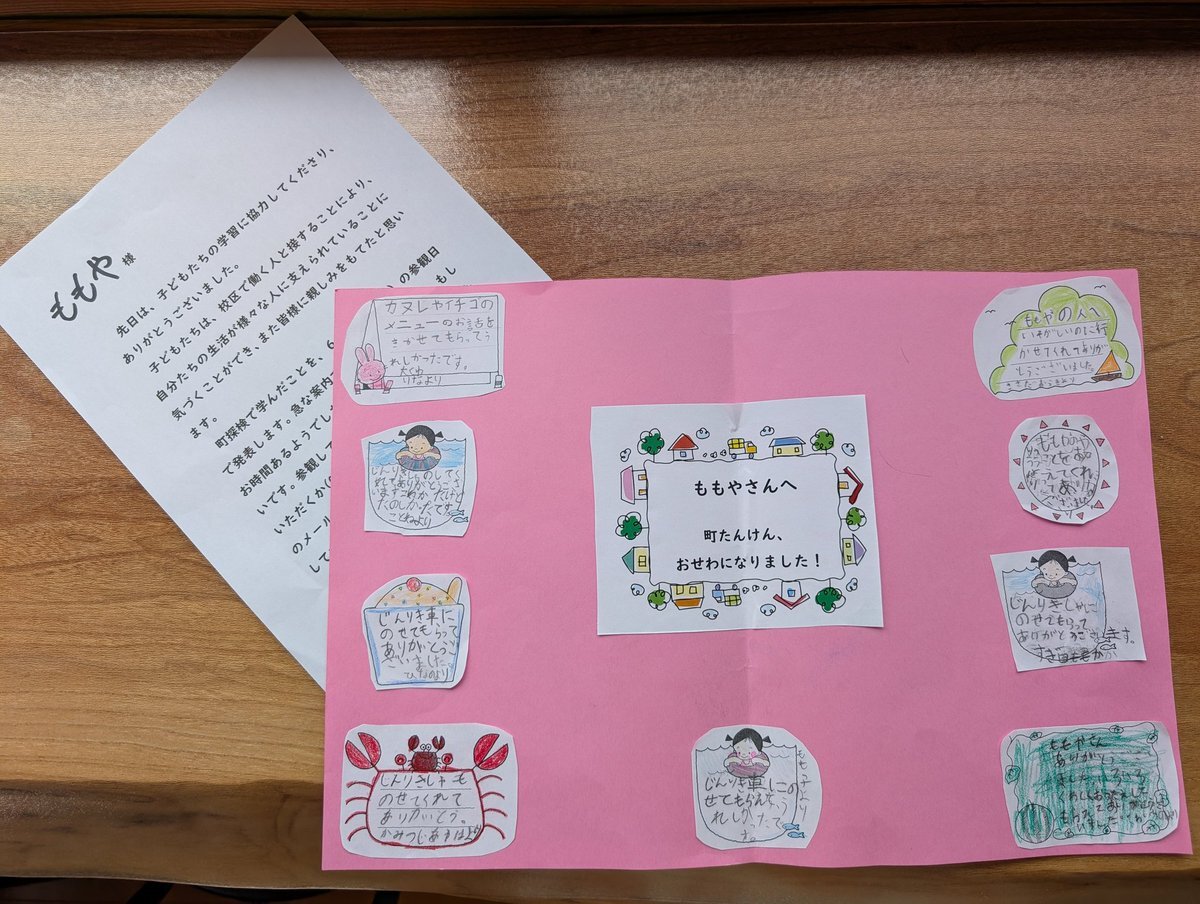 ももや様
先日は、子どもたちの学習に協力してくださり、
ありがとうございました。
子どもたちは、校区で働く人と接することにより、
自分たちの生活が様々な人に支えられていることに
気づくことができ、また皆様に親しみをもてたと思い
ます。
町探検で学んだことを、6
の参観日
で発表します。急な案内で
もし
お時間あるようでし
いです。参観して
いただくか
のメール
して
カヌレやイチゴの
メニューのお話を
きかせてもらってう
れしかったです。
りなより
じんりきしゃのしてく
れてありがとうござ
います
たのしかったです。
ことねより
じんりき車に
のせてもらって
ありがとうご
ざいました。
ひなのより
じんりきしゃも
のせてくれて
ありがとう。
ももやさんへ
町たんけん、
おせわになりました！
じんりき車にの
せてもらえてう
れしかったで
す。
もも子より
ももやの人へ
いそがしいのに行
かせてくれてありが
とうございました。
じんりきしゃに
のせてもらって
ありがとうございます。
ももやさん
ありがとう